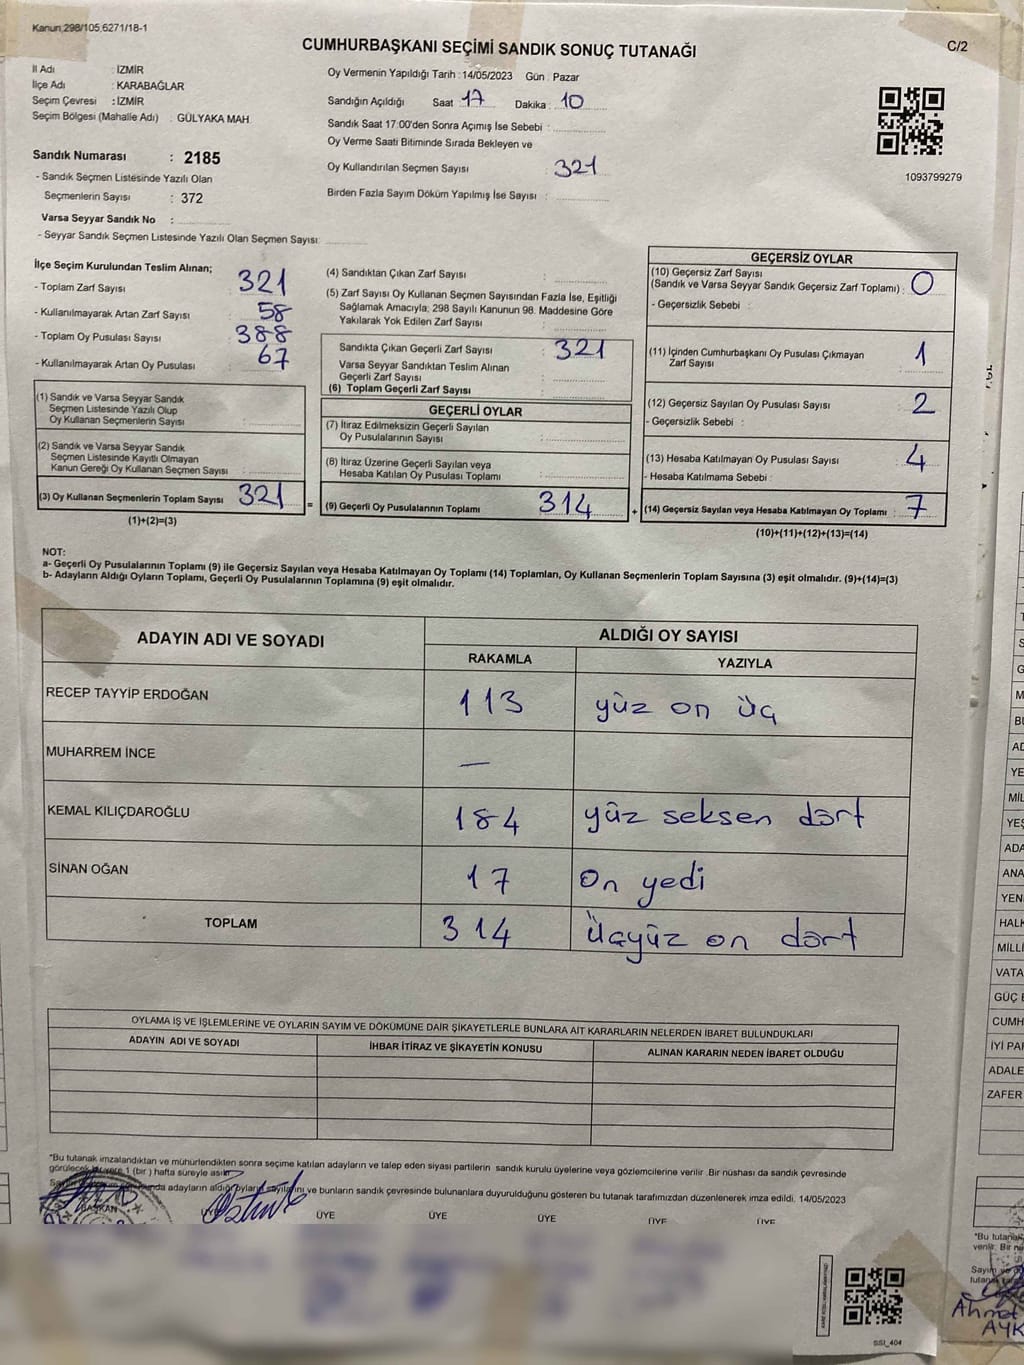 Kanun 298/105,6271/18-1
CUMHURBAŞKANI SEÇİMİ SANDIK SONUÇ TUTANAĞI
C/2
İl Adı : İZMİR
İlçe Adı : KARABAĞLAR
Seçim Çevresi : İZMİR
Seçim Bölgesi (Mahalle Adı) : GÜLYAKA MAH.
Sandık Numarası : 2185
- Sandık Seçmen Listesinde Yazılı Olan
Seçmenlerin Sayısı : 372
Varsa Seyyar Sandık No :
- Seyyar Sandık Seçmen Listesinde Yazılı Olan Seçmen Sayısı:
Oy Vermenin Yapıldığı Tarih : 14/05/2023 Gün : Pazar
Sandığın Açıldığı Saat 17 Dakika : 10
Sandık Saat 17:00'den Sonra Açımış İse Sebebi :
Oy Verme Saati Bitiminde Sırada Bekleyen ve
Oy Kullandırılan Seçmen Sayısı : 321
Birden Fazla Sayım Döküm Yapılmış İse Sayısı :
1093799279
İlçe Seçim Kurulundan Teslim Alınan;
- Toplam Zarf Sayısı 321
- Kullanılmayarak Artan Zarf Sayısı 58
- Toplam Oy Pusulası Sayısı 388
- Kullanılmayarak Artan Oy Pusulası 67
(1) Sandık ve Varsa Seyyar Sandık
Seçmen Listesinde Yazılı Olup
Oy Kullanan Seçmenlerin Sayısı :
(2) Sandık ve Varsa Seyyar Sandık
Seçmen Listesinde Kayıtlı Olmayan
Kanun Gereği Oy Kullanan Seçmen Sayısı :
(3) Oy Kullanan Seçmenlerin Toplam Sayısı 321 =
(1)+(2)=(3)
(4) Sandıktan Çıkan Zarf Sayısı :
(5) Zarf Sayısı Oy Kullanan Seçmen Sayısından Fazla İse, Eşitliği
Sağlamak Amacıyla; 298 Sayılı Kanunun 98. Maddesine Göre
Yakılarak Yok Edilen Zarf Sayısı :
Sandıkta Çıkan Geçerli Zarf Sayısı : 321
Varsa Seyyar Sandıktan Teslim Alınan
Geçerli Zarf Sayısı :
(6) Toplam Geçerli Zarf Sayısı :
GEÇERLİ OYLAR
(7) İtiraz Edilmeksizin Geçerli Sayılan
Oy Pusulalarının Sayısı :
(8) İtiraz Üzerine Geçerli Sayılan veya
Hesaba Katılan Oy Pusulası Toplamı :
(9) Geçerli Oy Pusulalarının Toplamı 314 +
GEÇERSİZ OYLAR
(10) Geçersiz Zarf Sayısı
(Sandık ve Varsa Seyyar Sandık Geçersiz Zarf Toplamı) : 0
- Geçersizlik Sebebi :
(11) İçinden Cumhurbaşkanı Oy Pusulası Çıkmayan
Zarf Sayısı : 1
(12) Geçersiz Sayılan Oy Pusulası Sayısı : 2
- Geçersizlik Sebebi :
(13) Hesaba Katılmayan Oy Pusulası Sayısı : 4
- Hesaba Katılmama Sebebi :
(14) Geçersiz Sayılan veya Hesaba Katılmayan Oy Toplamı : 7
(10)+(11)+(12)+(13)=(14)
NOT:
a- Geçerli Oy Pusulalarının Toplamı (9) ile Geçersiz Sayılan veya Hesaba Katılmayan Oy Toplamı (14) Toplamları, Oy Kullanan Seçmenlerin Toplam Sayısına (3) eşit olmalıdır. (9)+(14)=(3)
b- Adayların Aldığı Oyların Toplamı, Geçerli Oy Pusulalarının Toplamına (9) eşit olmalıdır.
ADAYIN ADI VE SOYADI ALDIĞI OY SAYISI
RAKAMLA YAZIYLA
RECEP TAYYİP ERDOĞAN 113 yüz on üç
MUHARREM İNCE —
KEMAL KILIÇDAROĞLU 184 yüz seksen dört
SİNAN OĞAN 17 On yedi
TOPLAM 314 Üçyüz on dört
OYLAMA İŞ VE İŞLEMLERİNE VE OYLARIN SAYIM VE DÖKÜMÜNE DAİR ŞİKAYETLERLE BUNLARA AİT KARARLARIN NELERDEN İBARET BULUNDUKLARI
ADAYIN ADI VE SOYADI İHBAR İTİRAZ VE ŞİKAYETİN KONUSU ALINAN KARARIN NEDEN İBARET OLDUĞU
*Bu tutanak imzalandıktan ve mühürlendikten sonra seçime katılan adayların ve talep eden siyasi partilerin sandık kurulu üyelerine veya gözlemcilerine verilir .Bir nüshası da sandık çevresinde
görülecek bir yere 1 (bir ) hafta süreyle asılır.
adayların aldığı oyların sayılarını ve bunların sandık çevresinde bulunanlara duyurulduğunu gösteren bu tutanak tarafımızdan düzenlenerek imza edildi. 14/05/2023
BAŞKAN ÜYE ÜYE ÜYE ÜYE ÜYE ÜYE
SSİ_404
MİLLİ
VATA
CUMH
İYİ PAR
ADALE
ZAFER
*Bu tutana
verilir. Bir nü
Ahmet
AYK